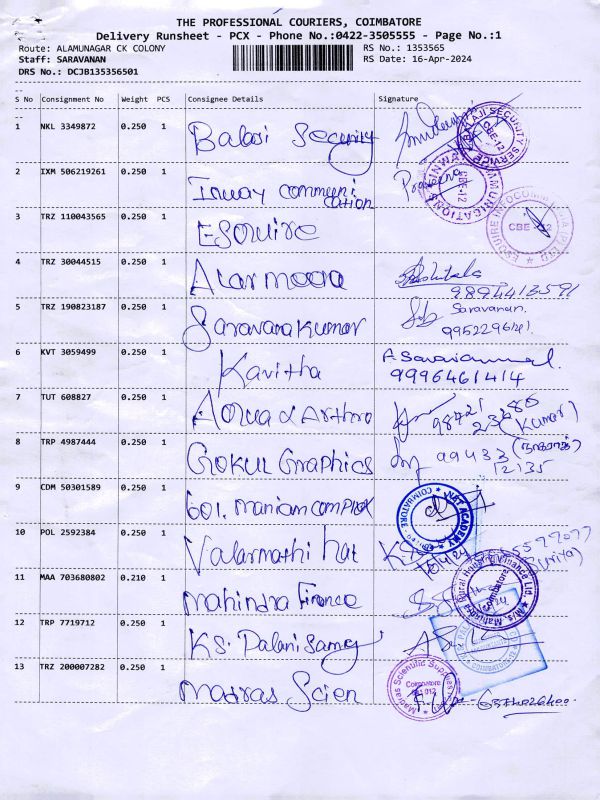 THE PROFESSIONAL COURIERS, COIMBATORE
Delivery Runsheet - PCX - Phone No.:0422-3505555 - Page No.:1
Route: ALAMUNAGAR CK COLONY RS No.: 1353565
Staff: SARAVANAN RS Date: 16-Apr-2024
DRS No.: DCJB135356501
S No Consignment No Weight PCS Consignee Details Signature
1 NKL 3349872 0.250 1 Balaji Security
BALAJI SECURITY SERVICE CBE-12
2 IXM 506219261 0.250 1 Inway communi
cation
INWAY COMMUNICATIONS CBE-12
3 TRZ 110043565 0.250 1 ESQUIRE
CBE
4 TRZ 30044515 0.250 1
9894413591
5 TRZ 190823187 0.250 1 Saravanakumar Saravanan.
6 KVT 3059499 0.250 1 Kavitha
9996461414
7 TUT 608827 0.250 1
(Kumar)
8 TRP 4987444 0.250 1 GOKUL Graphics 99433
12135
9 CDM 50301589 0.250 1 601. maniam complex
ACADEMY COIMBATORE
10 POL 2592384 0.250 1 Valarmathi
11 MAA 703680802 0.210 1 mahindra Finance
M/s. Mahindra Rural Housing Finance Ltd. Coimbatore
12 TRP 7719712 0.250 1 K.S. Palani Samy
13 TRZ 200007282 0.250 1 madras Scien
Madras Scientific Suppliers Coimbatore 641 012